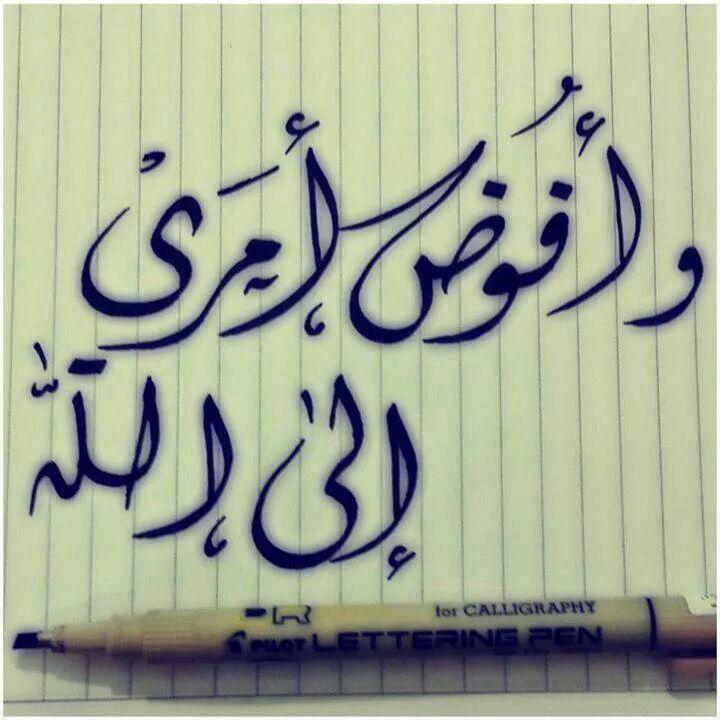 وأُفُوض أمَرىْ
إلىٰ اللّٰه
for CALLIGRAPHY
PILOT LETTERING PEN